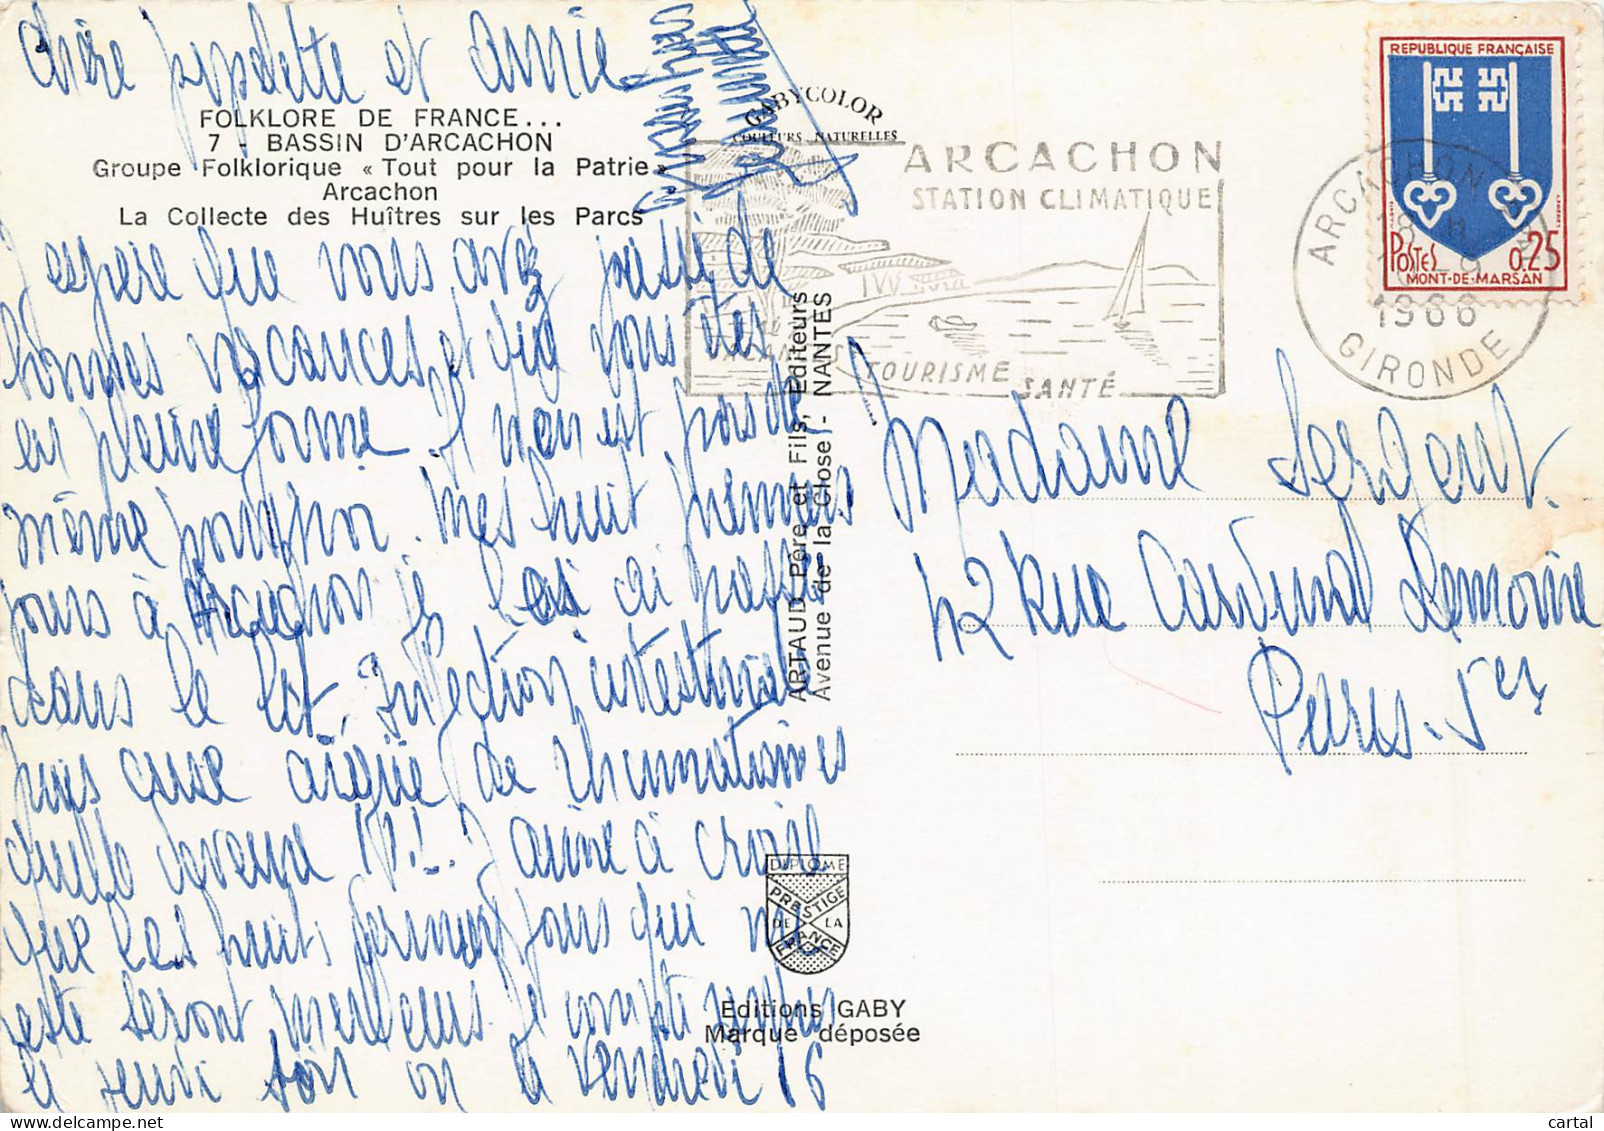 Chère pepdette et amie
FOLKLORE DE FRANCE...
7 - BASSIN D'ARCACHON
Groupe Folklorique « Tout pour la Patrie »
Arcachon
La Collecte des Huîtres sur les Parcs
J'espère que vous avez passé de
bonnes vacances et que vous êtes
en pleine forme. Il n'en est pas de
même pour moi. Mes huit premiers
jours à Arcachon je les ai passés
dans le lit, infection intestinale
puis crise aigüe de rhumatismes
quelle
J'aime à croire
que les huit derniers jours qui me
reste seront meilleurs. Je compte
le jeudi soir ou le vendredi 16
GABYCOLOR
COULEURS NATURELLES
ARTAUD Père et Fils, Editeurs
Avenue de la Close - NANTES
DIPLOME
PRESTIGE
DE LA
FRANCE
Editions GABY
Marque déposée
ARCACHON
STATION CLIMATIQUE
TOURISME
SANTÉ
ARCACHON
18 H
1966
GIRONDE
REPUBLIQUE FRANÇAISE
POSTES 0.25
MONT-DE-MARSAN
Madame Sergent.
42 Rue Cardinal Lemoine
Paris. 5em
cartal